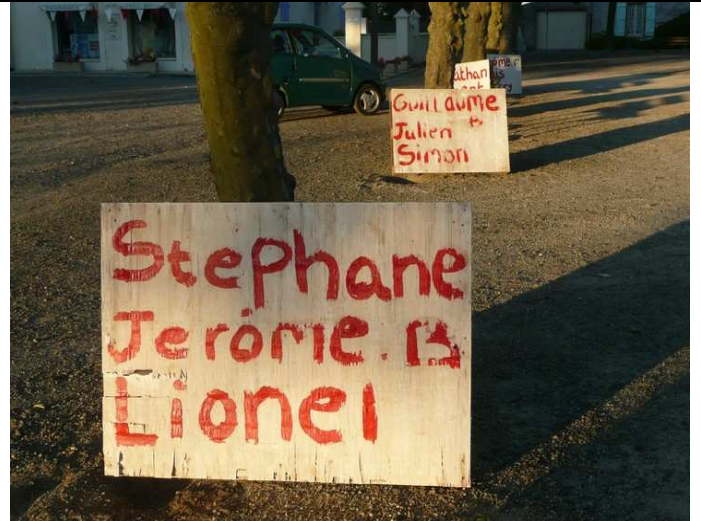 Stephane
Jerôme. B
Lionel
Guillaume
Julien B
Simon